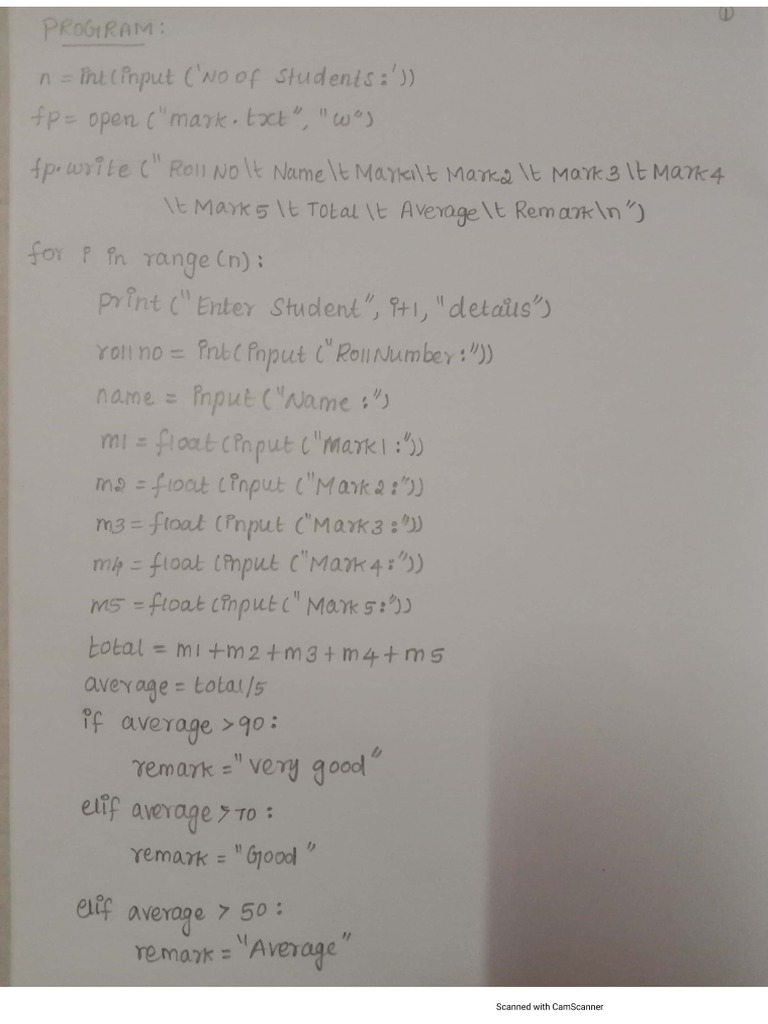 ①
PROGRAM:
n = int(input ('NO of Students:'))
fp = open ("mark.txt", "w")
fp.write (" Roll No \t Name \t Mark1 \t Mark2 \t Mark 3 \t Mark 4
\t Mark 5 \t Total \t Average \t Remark \n")
for i in range (n):
print ("Enter Student", i+1, "details")
roll no = int(input ("Roll Number:"))
name = input ("Name :")
m1 = float (input ("Mark 1:"))
m2 = float (input ("Mark 2:"))
m3 = float (input ("Mark 3:"))
m4 = float (input ("Mark 4:"))
m5 = float (input (" Mark 5:"))
total = m1 + m2 + m3 + m4 + m5
average = total/5
if average > 90:
remark = "very good"
elif average > 70:
remark = "Good"
elif average > 50:
remark = "Average"
Scanned with CamScanner